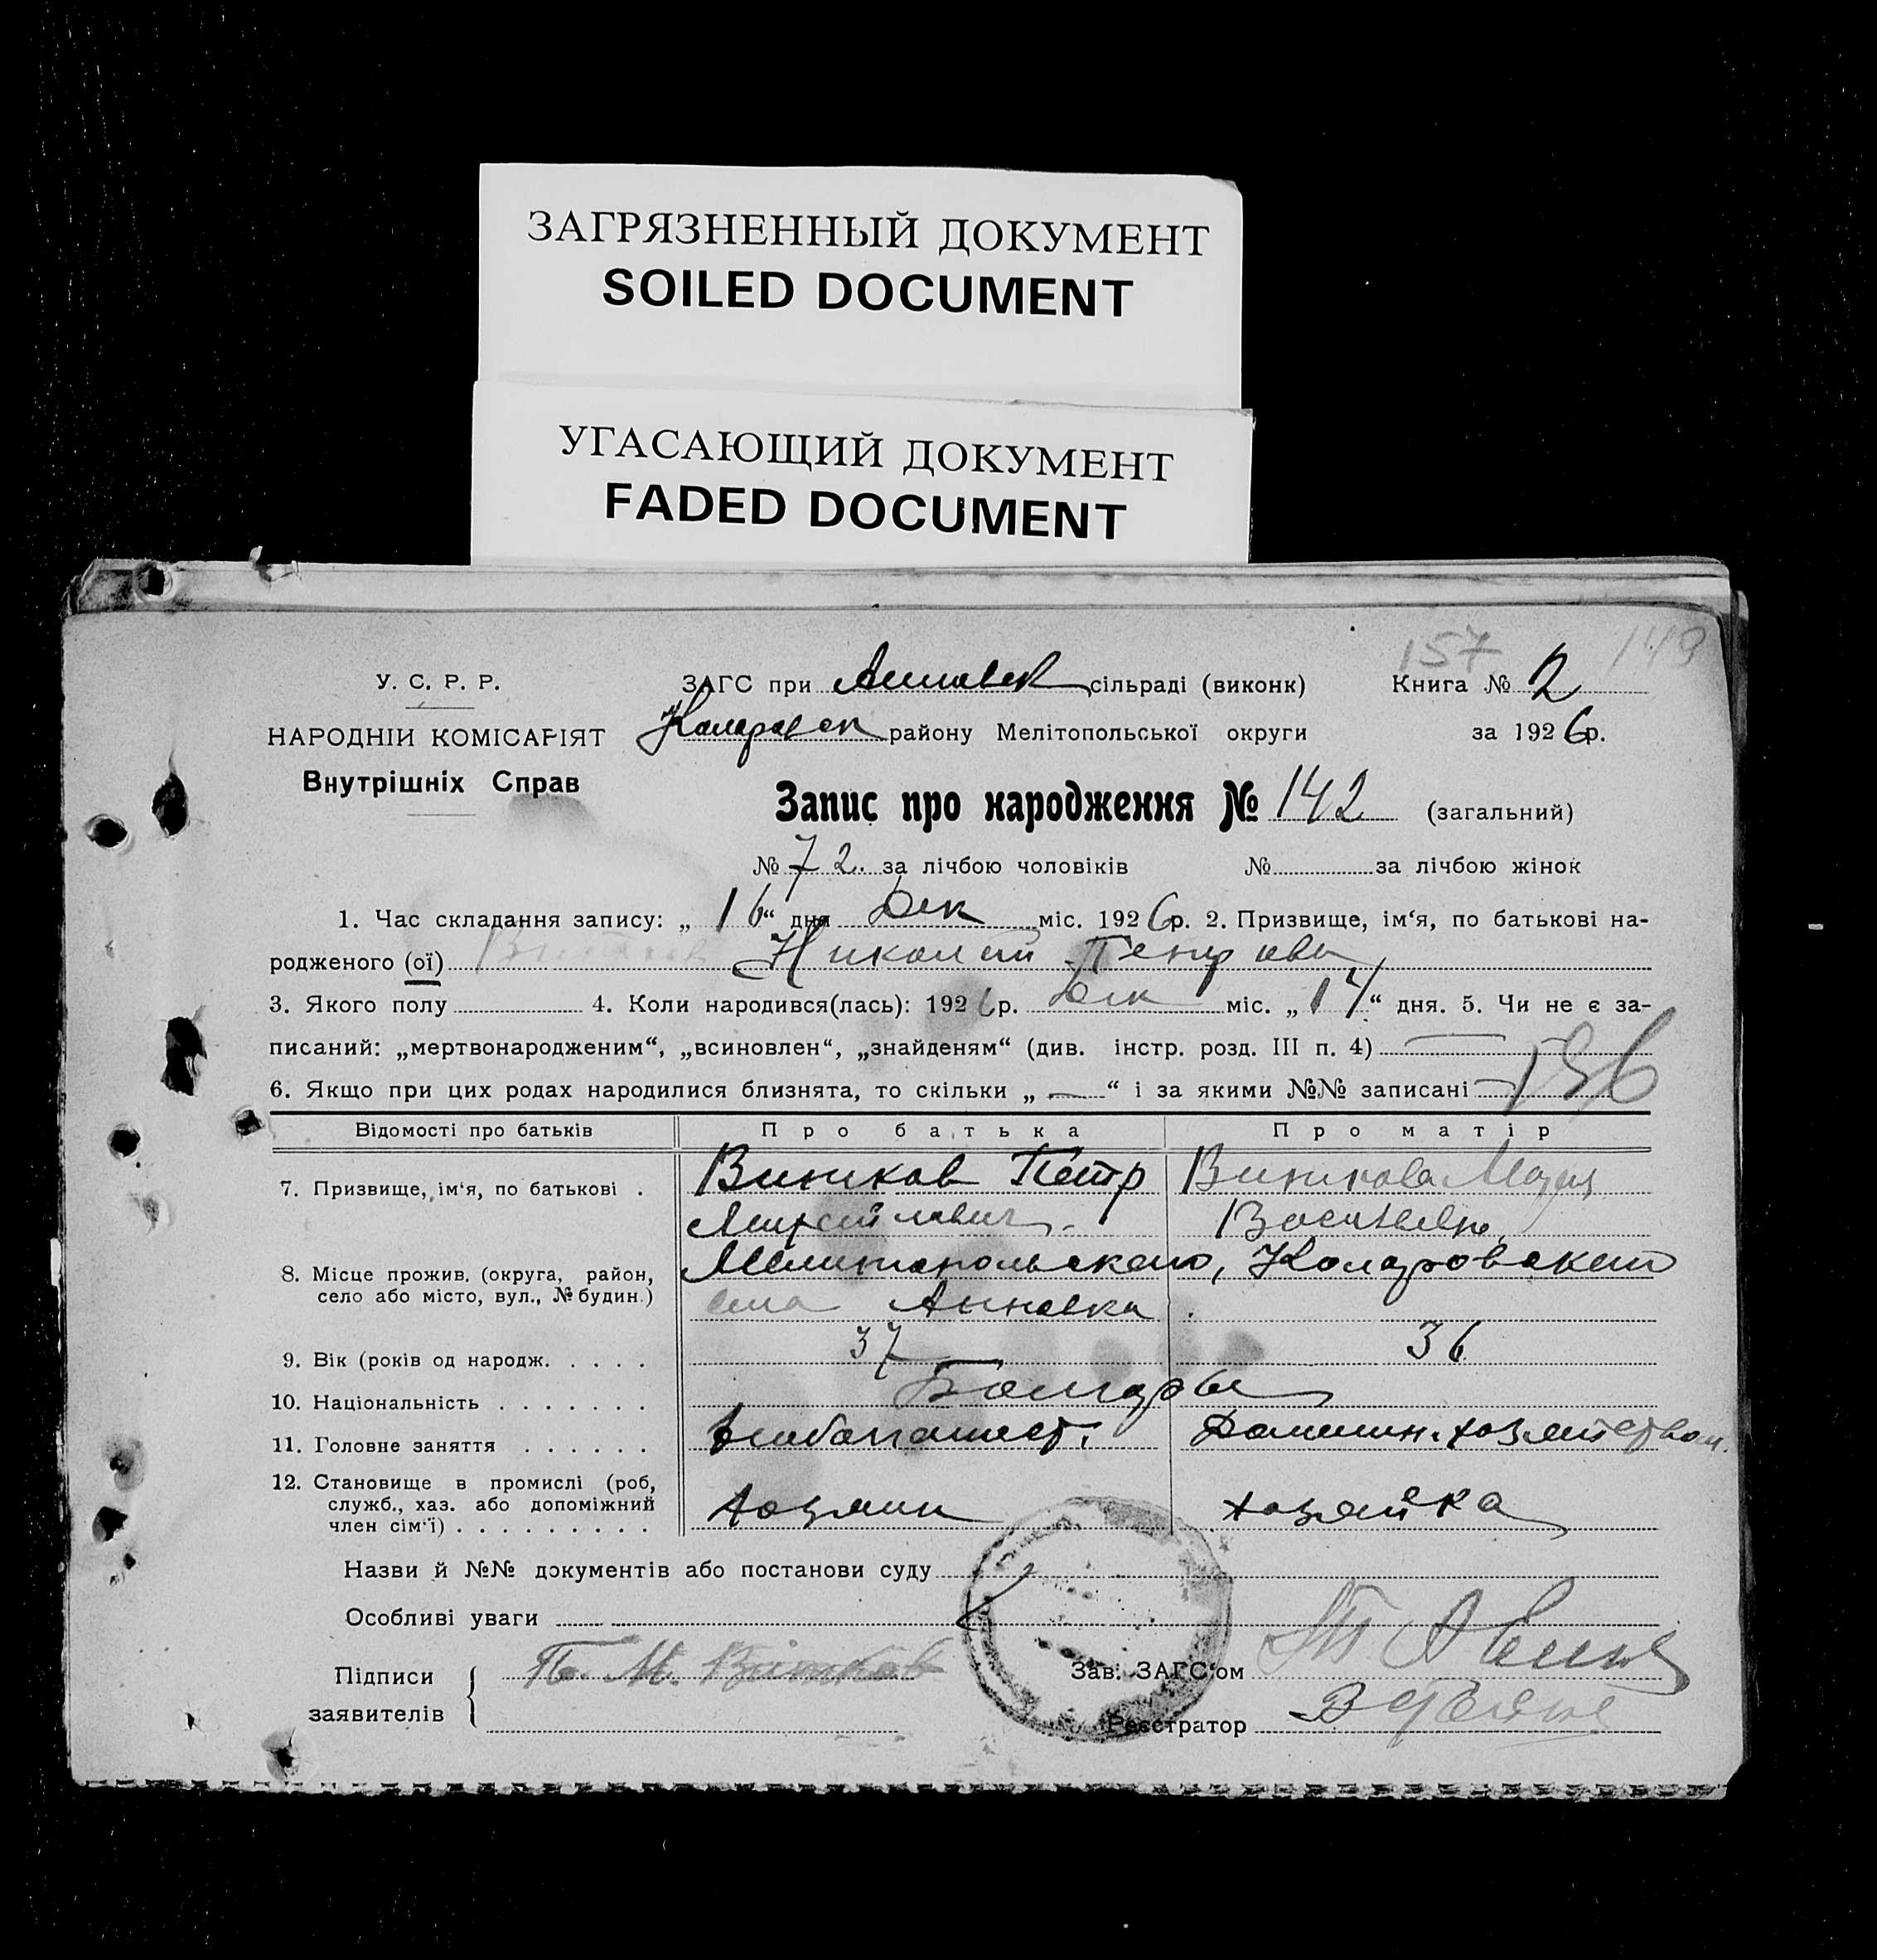 ЗАГРЯЗНЕННЫЙ ДОКУМЕНТ
SOILED DOCUMENT
УГАСАЮЩИЙ ДОКУМЕНТ
FADED DOCUMENT
157 149
У. С. Р. Р. ЗАГС при Анновск сільраді (виконк) Книга № 2
НАРОДНІИ КОМІСАРІЯТ Коларовск району Мелітопольської округи за 1926р.
Внутрішніх Справ
Запис про народження № 142 (загальний)
№ 72. за лічбою чоловіків № за лічбою жінок
1. Час складання запису: „ 16 “ дня Дек міс. 1926р. 2. Призвище, ім‘я, по батькові на-
родженого (ої) Николай Петров
3. Якого полу 4. Коли народився(лась): 1926р. Дек міс. „ 14 “ дня. 5. Чи не є за-
писаний: „мертвонародженим“, „всиновлен“, „знайденям“ (див. інстр. розд. III п. 4) —
6. Якщо при цих родах народилися близнята, то скільки „ — “ і за якими №№ записані — 156
Відомості про батьків Про батька Про матір
7. Призвище, ім‘я, по батькові . Винжов Петр Винжова Мария
8. Місце прожив. (округа, район, Мелитопольского, Коларовского
село або місто, вул., № будин.) села Анновка
9. Вік (років од народж. . . . . 37 36
10. Національність . . . . . . . Болгары
11. Головне заняття . . . . . . хлебопашест. Домашн. хозяйством
12. Становище в промислі (роб,
служб., хаз. або допоміжний хозяин хозяйка
член сім‘ї) . . . . . . . . .
Назви й №№ документів або постанови суду
Особливі уваги
Підписи П. М. Зав. ЗАГС‘ом
заявителів Реєстратор